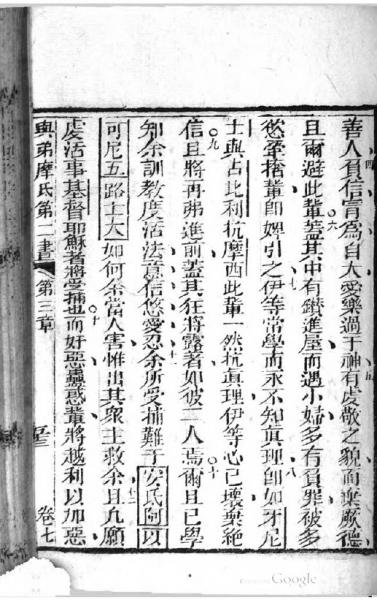 善人負信肯爲自大愛樂過于神有虔敬之貌而棄厥德
且爾避此輩蓋其中有鑚進屋而遇小婦多有負罪被多
慾牽捨輩卽娓引之伊等常學而永不知眞理卽如牙尼
士與占比利抗摩西此輩一然抗眞理伊等心已壞棄絶
信且將再弗進前蓋其狂將露著如彼二人焉爾且已學
知余訓教度活法意信悠愛忍余所受捕難于安氏阿以
可尼五路士大如何余當人害惟出其衆主救余且凡願
虔活事基督耶穌者將受捕也而好惡蠱惑輩將越利以加惡
與弟摩氏第二書 第三章 卷七
Google